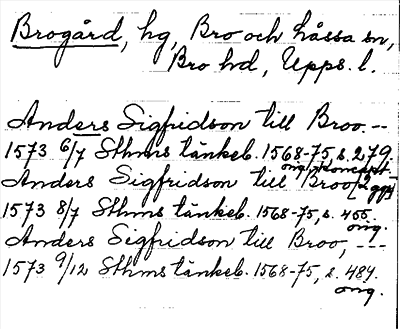 Brogård, hg, Bro och Låssa sn,
Bro hd, Upps. l.
Anders Sigfridson till Broo. --
1573 6/7 Sthms tänkeb. 1568-75, s. 279.
orig./koncept.
Anders Sigfridson till Broo [2 ggr]
1573 8/7 Sthms tänkeb. 1568-75, s. 455
orig.
Anders Sigfridson till Broo, ---
1573 9/12 Sthms tänkeb. 1568-75, s. 484.
orig.